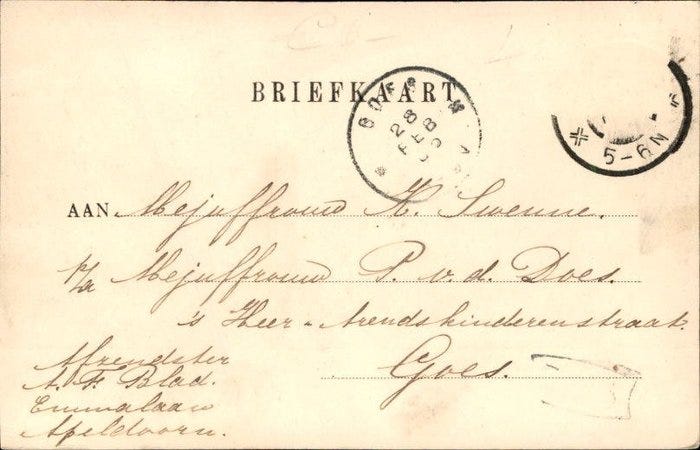 BRIEFKAART
GOES
28
FEB
5-6N
AAN Mejuffrouw K. Swenne.
p/a Mejuffrouw P. v. d. Does.
's Heer-Arendskinderenstraat.
Goes.
Afzendster
A. F. Blad.
Emmalaan
Apeldoorn.